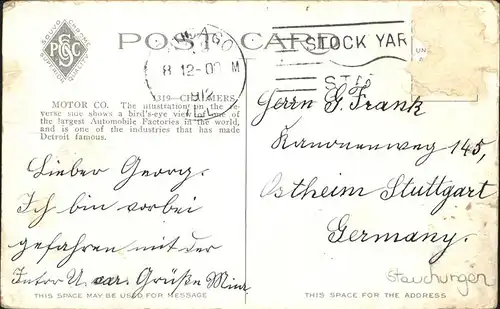 POST CARD
CHICAGO
8 12-00 M
1912
ILL
STOCK YAR
1319—CHALMERS
MOTOR CO. The illustration on the re-
verse side shows a bird's-eye view of one of
the largest Automobile Factories in the world,
and is one of the industries that has made
Detroit famous.
Lieber Georg.
Ich bin vorbei
gefahren mit der
U. car. Grüße
Herrn G. Frank
Kanonenweg 145,
Ostheim Stuttgart
Germany.
Stauchungen
THIS SPACE MAY BE USED FOR MESSAGE
THIS SPACE IS FOR THE ADDRESS